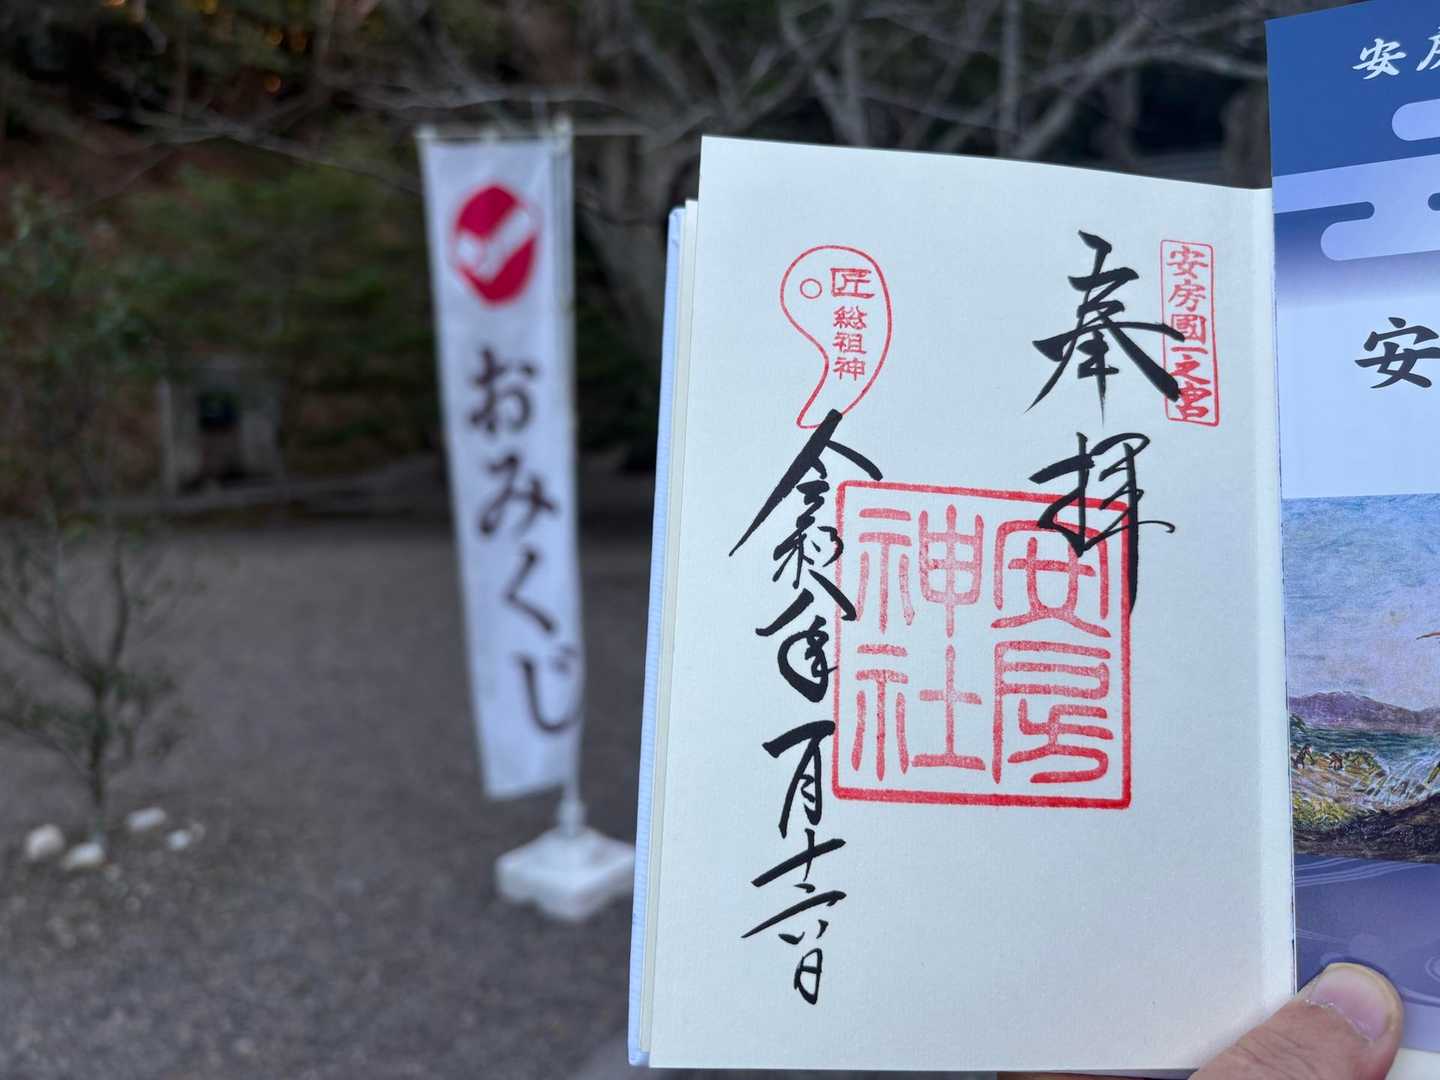 おみくじ
奉拝
安房國一之宮
安房神社
匠総祖神
令和八年一月十六日
安房
安